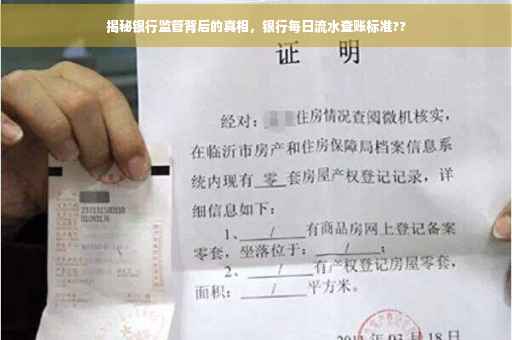 揭秘银行监管背后的真相，银行每日流水查账标准??
证 明
经对：住房情况查阅微机核实，
在临沂市房产和住房保障局档案信息系
统内现有 零 套房屋产权登记记录，详
细信息如下：
1、 / 有商品房网上登记备案
零套，坐落位于： / ；
2、 / 有产权登记房屋零套，
面积： / 平方米。
03月18日